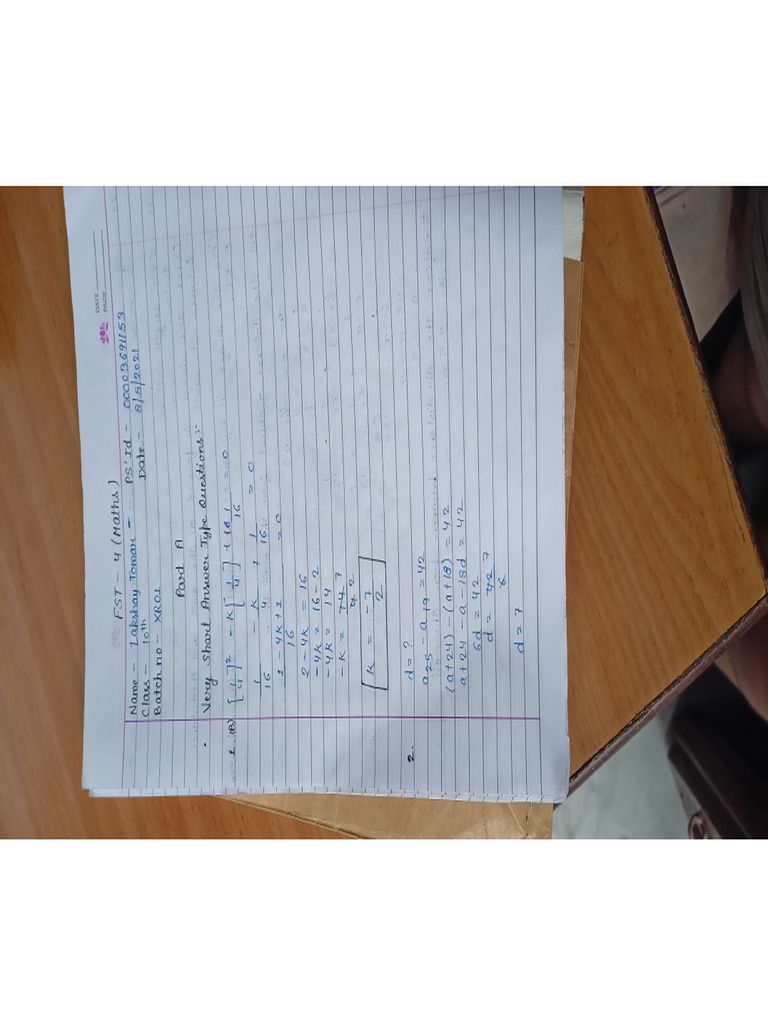 DATE
PAGE
FST - 4 (Maths)
Name - Lakshay Tomar - PS'Id - 00003691153
Class - 10th Date - 8/5/2021
Batch no - XR01
Part A
Very Short Answer Type Questions:-
1. (B) [1/4]² - K[1/4] + 1/16 = 0
1/16 - K/4 + 1/16 = 0
1 - 4K + 1/16 = 0
2 - 4K = 16
-4K = 16 - 2
-4K = 14
-K = 14 7/4 2
[K = -7/2]
2. d = ?
a25 - a19 = 42
(a+24) - (a+18) = 42
a+24 - a - 18d = 42
6d = 42
d = 42 7/6
d = 7